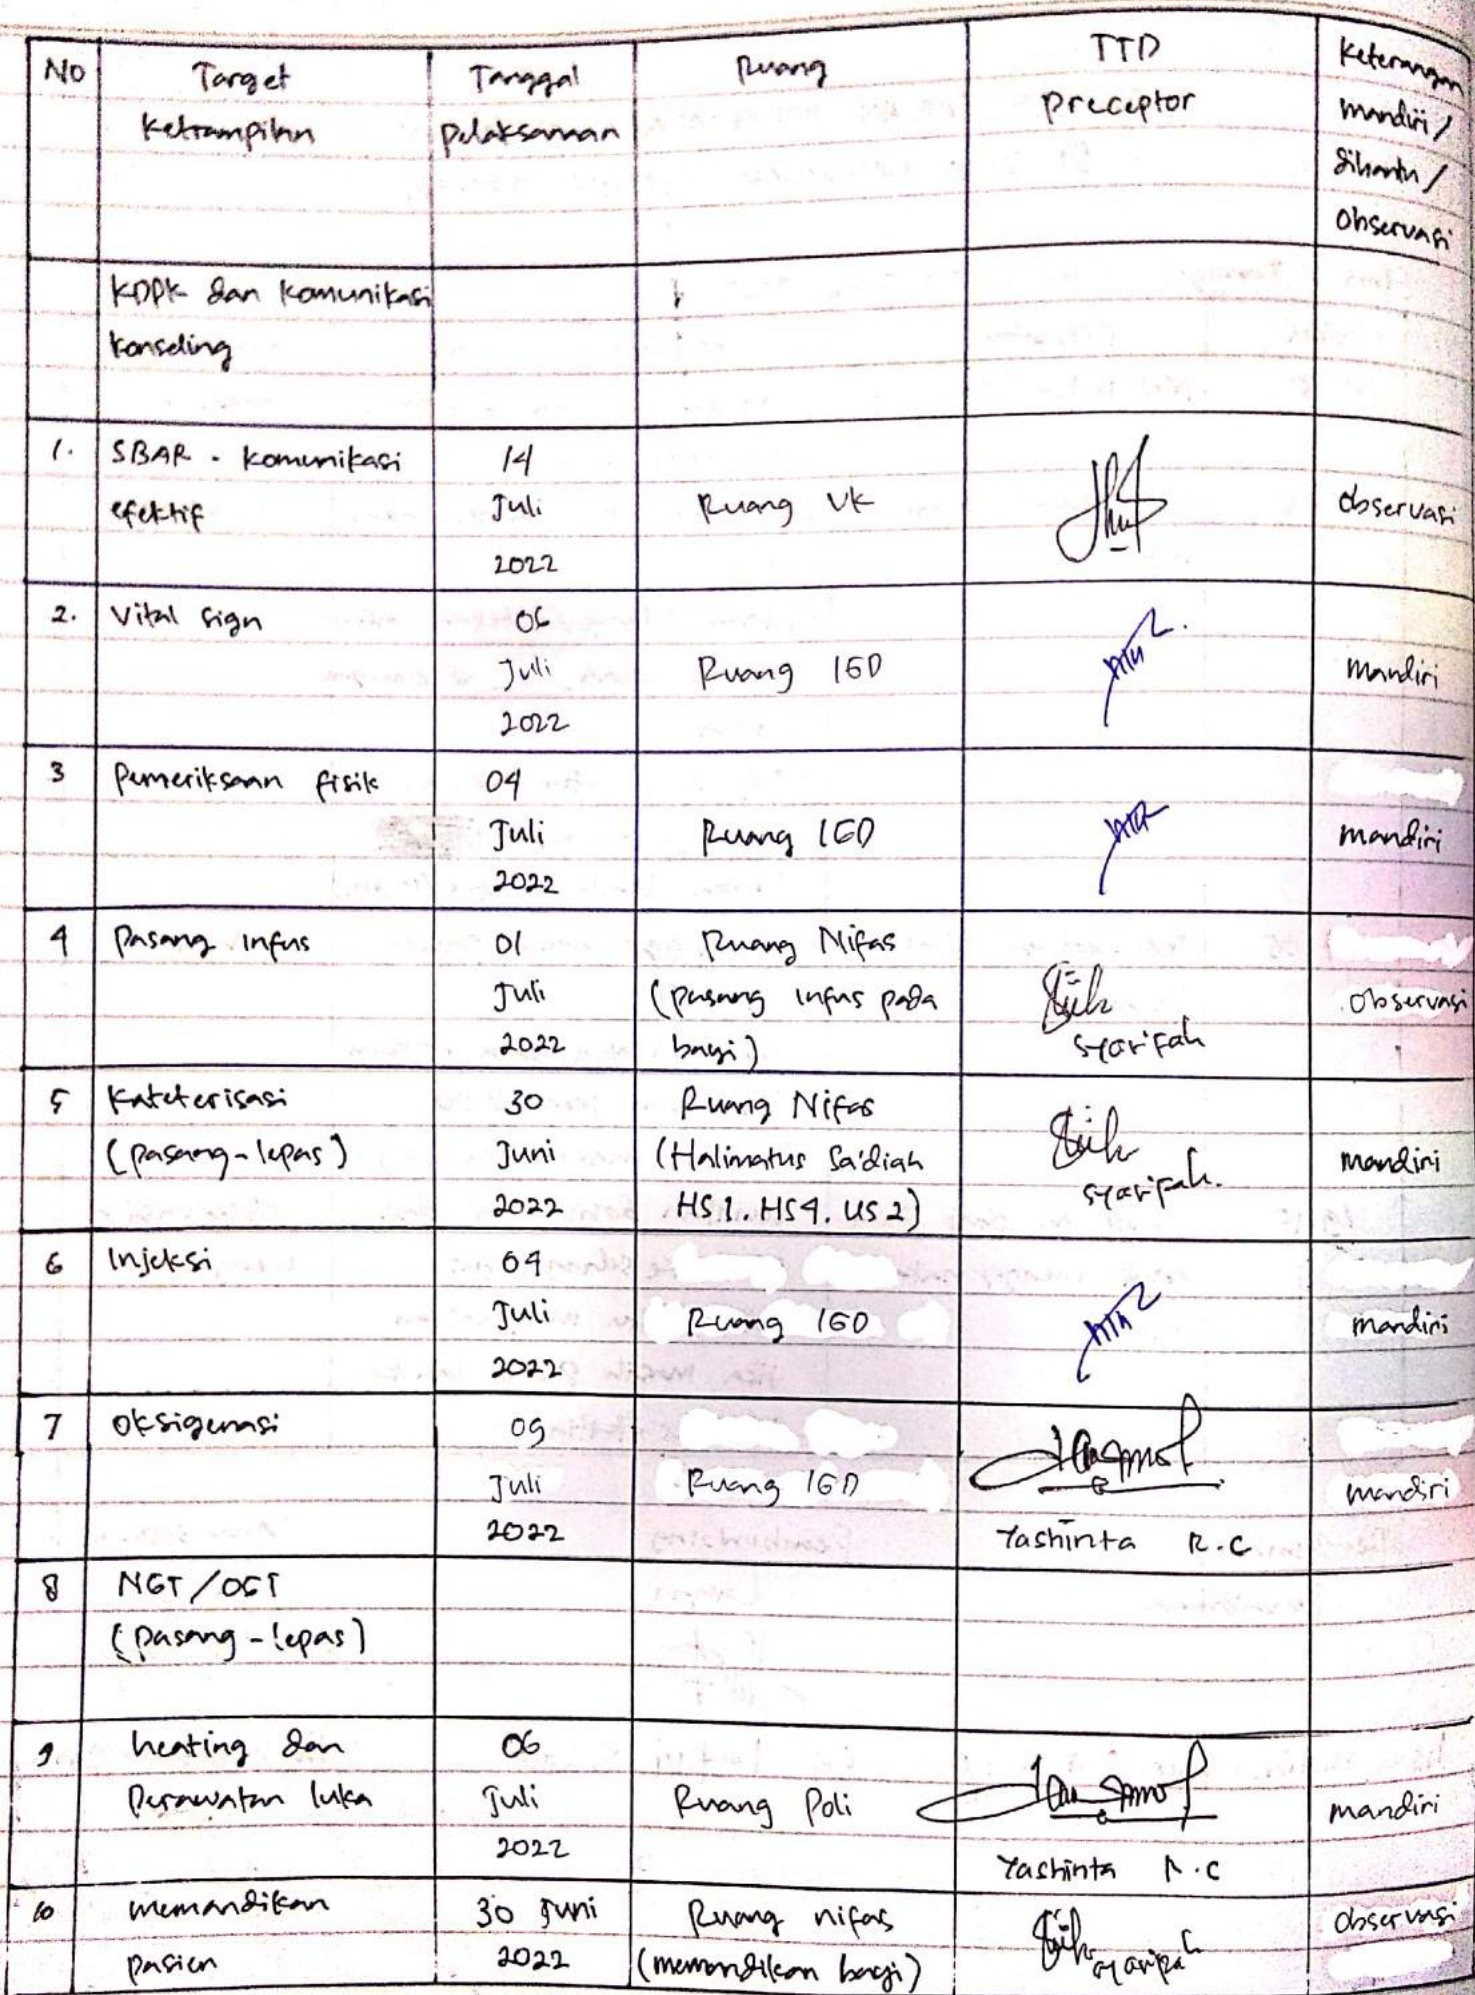 No Target Ketrampilan Tanggal pelaksanaan Ruang TTD preceptor Keterangan mandiri / dibantu / Observasi
KDPK dan Komunikasi
Konseling
1. SBAR - komunikasi efektif 14 Juli 2022 Ruang VK observasi
2. Vital sign 06 Juli 2022 Ruang IGD mandiri
3 Pemeriksaan fisik 04 Juli 2022 Ruang IGD mandiri
4 Pasang infus 01 Juli 2022 Ruang Nifas (pasang infus pada bayi) syarifah observasi
5 Kateterisasi (pasang-lepas) 30 Juni 2022 Ruang Nifas (Halimatus Sa'diah HS.1. HS4. US2) syarifah. mandiri
6 Injeksi 04 Juli 2022 Ruang IGD mandiri
7 Oksigenasi 09 Juli 2022 Ruang IGD Yashinta R.C mandiri
8 NGT/OGT (pasang-lepas)
9. heating dan perawatan luka 06 Juli 2022 Ruang Poli Yashinta R.C mandiri
10 memandikan pasien 30 Juni 2022 Ruang nifas (memandikan bayi) syarifah observasi